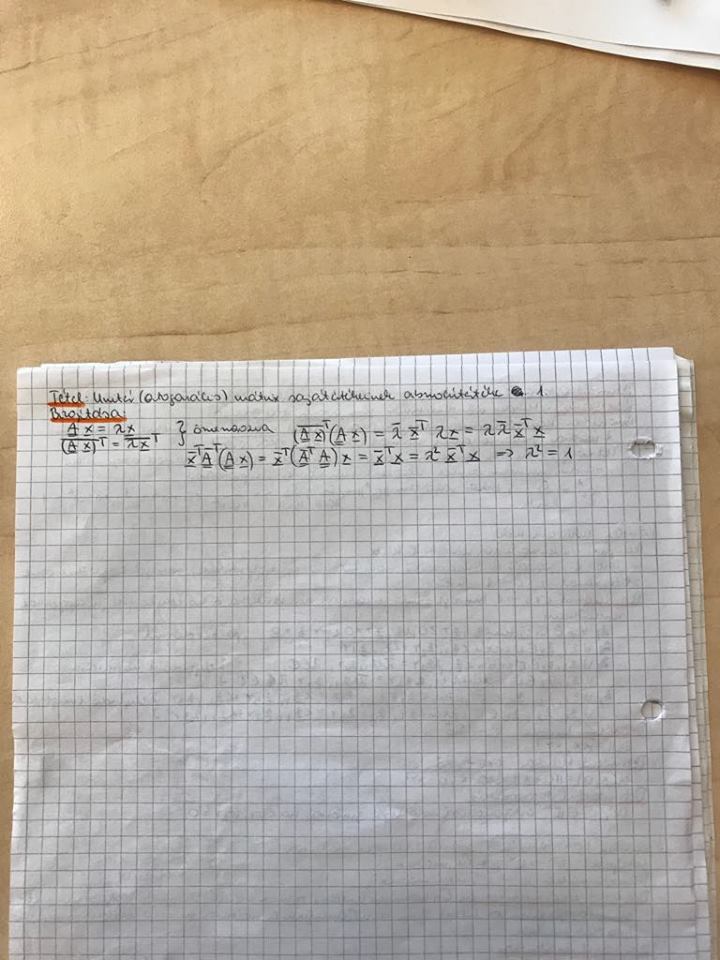 Tétel: Unitér (ortogonális) mátrix sajátértékeinek abszolútértéke 1.
Bizonyítása
A x = λx
(A x)ᵀ = λ̄x̄ᵀ } összeszorozva (A̅ x̅)ᵀ(A x) = λ̄ x̄ᵀ λx = λ λ̄ x̄ᵀ x
x̄ᵀA̅ᵀ(A x) = x̄ᵀ(A̅ᵀ A)x = x̄ᵀx = λ² x̄ᵀx ⇒ λ² = 1